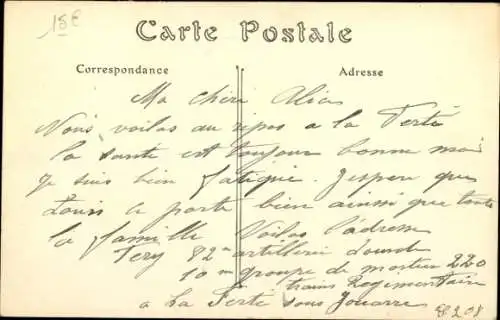 15€
Carte Postale
Correspondance
Adresse
Ma chéri Alice
Nous voilas au repos a la Ferté
la santé est toujour bonne moi
je suis bien fatigue. Jespere que
Louis a porte bien ainsi que toute
la famille Voilas l'adresse
Fery 82m artillerie lourde
10m groupe de mortier 220
trains Regimentaire
a La Ferte sous Jouarre